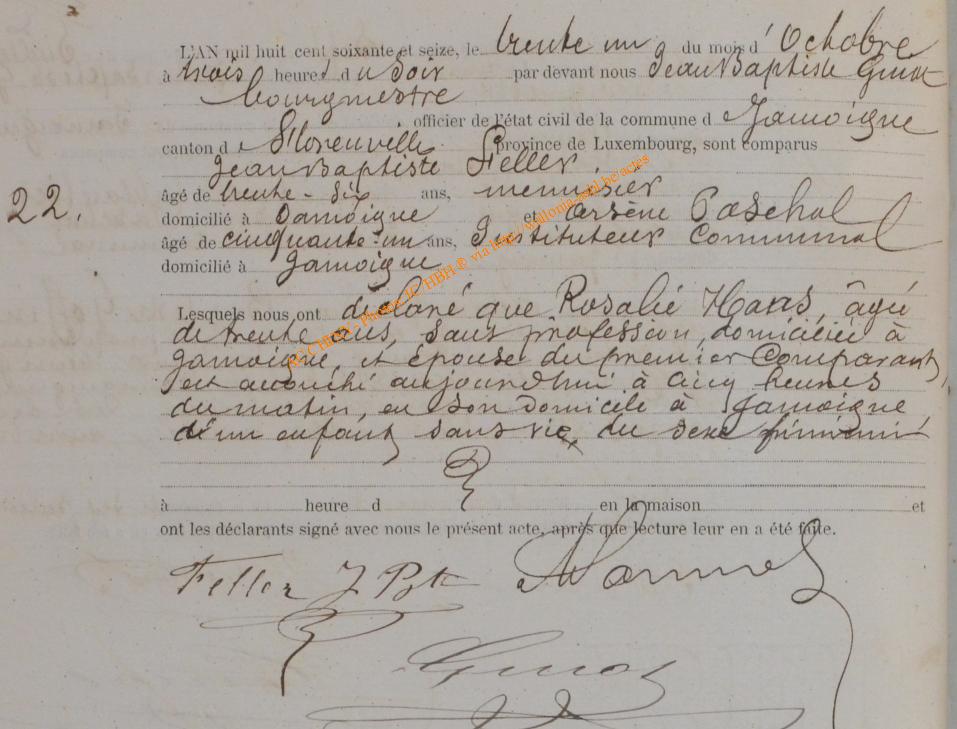 L'AN mil huit cent soixante et seize, le trente un du mois d' Octobre
à trois heures du Soir par devant nous Jean Baptiste
bourgmestre
, officier de l'état civil de la commune d Jamoigne
canton d province de Luxembourg, sont comparus
Jean Baptiste Feller,
22. âgé de trente-six ans, menuisier
domicilié à Jamoigne et Arsène Paschal
âgé de cinquante-un ans, Instituteur Communal
domicilié à Jamoigne
Lesquels nous ont déclaré que Rosalie Haas, âgé
de trente ans, sans profession, domiciliée à
Jamoigne, et épouse du premier Comparant,
est accouché aujourdhui à cinq heures
du matin, en son domicile à Jamoigne,
d'un enfant sans vie, du sexe féminin
à heure d en la maison et
ont les déclarants signé avec nous le présent acte, après que lecture leur en a été faite.
Feller J Bte